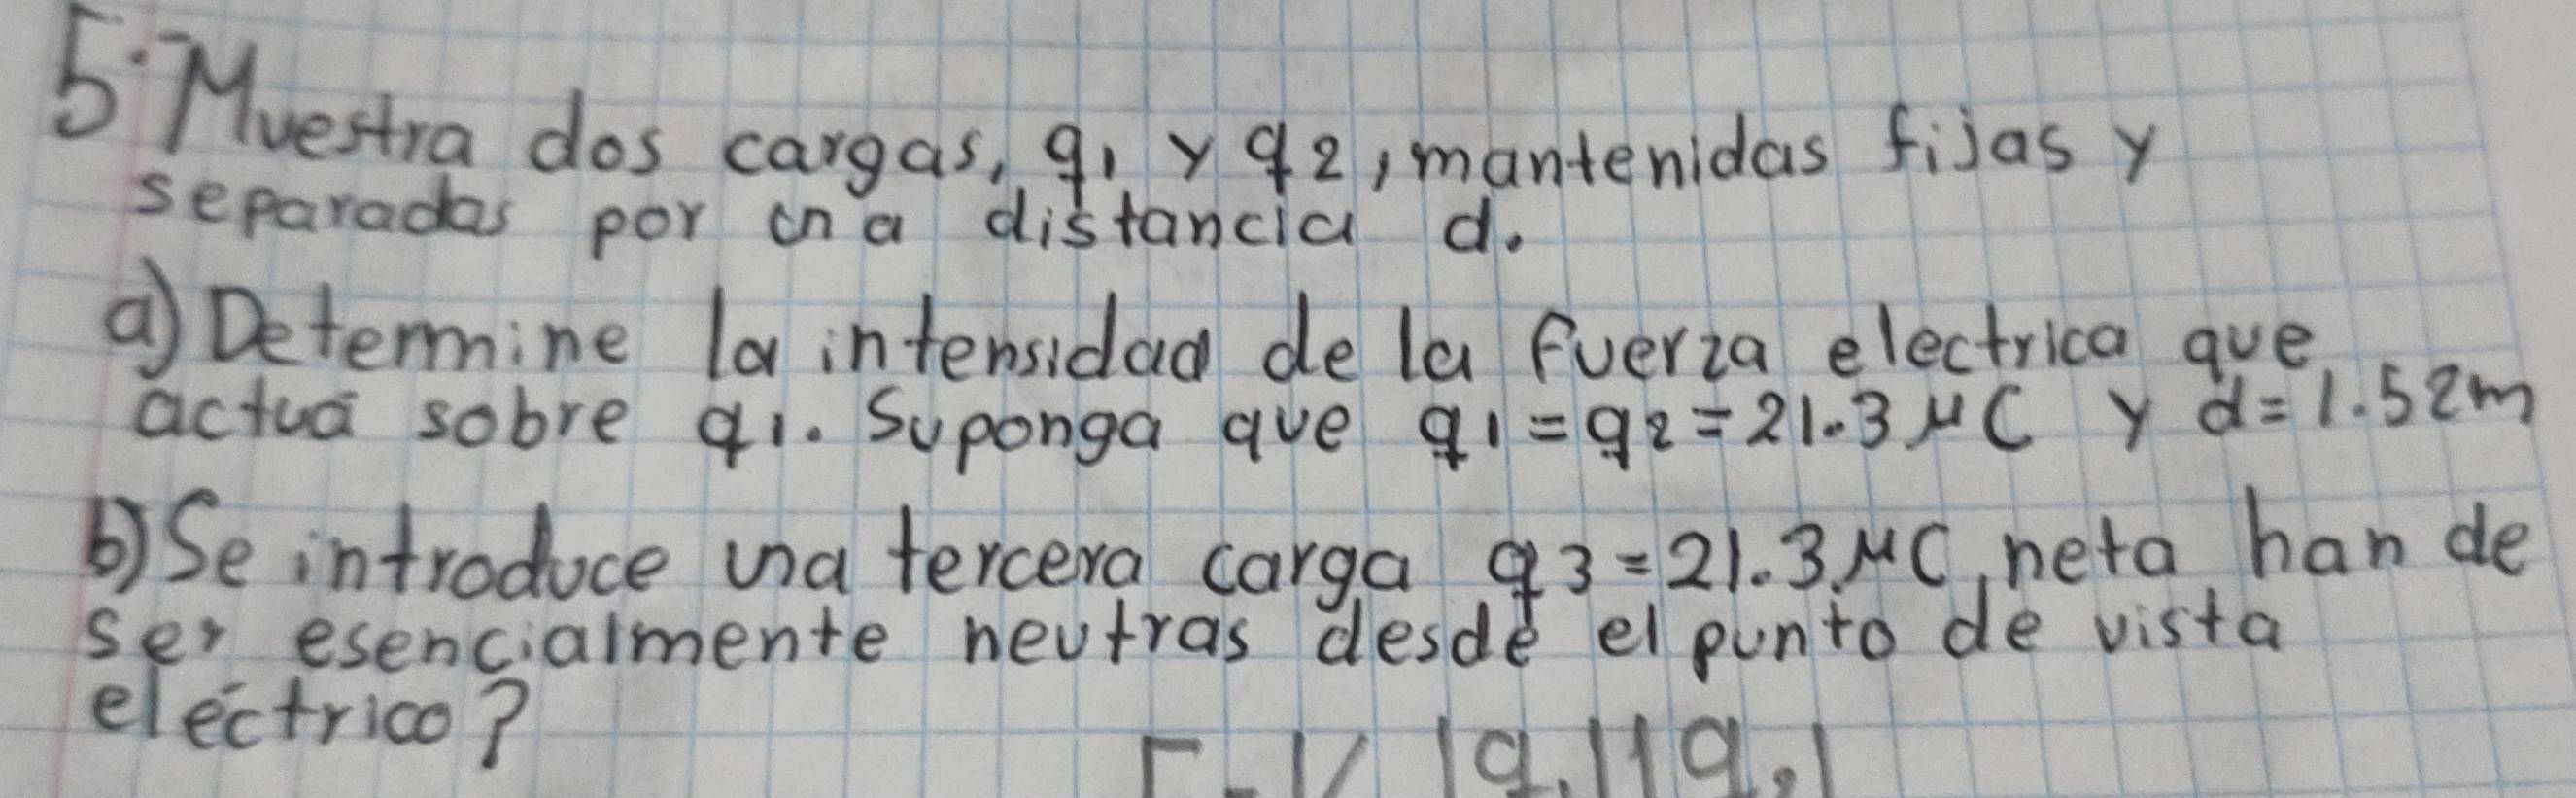 5. Muestra dos cargas, q1 y q2, mantenidas fijas y
separadas por una distancia d.
a) Determine la intensidad de la fuerza electrica que
actuá sobre q1. Suponga que q1 = q2 = 21.3 μC y d = 1.52m
b) Se introduce una tercera carga q3 = 21.3 μC, neta han de
ser esencialmente neutras desde el punto de vista
eléctrico?
F = K |q1||q2|